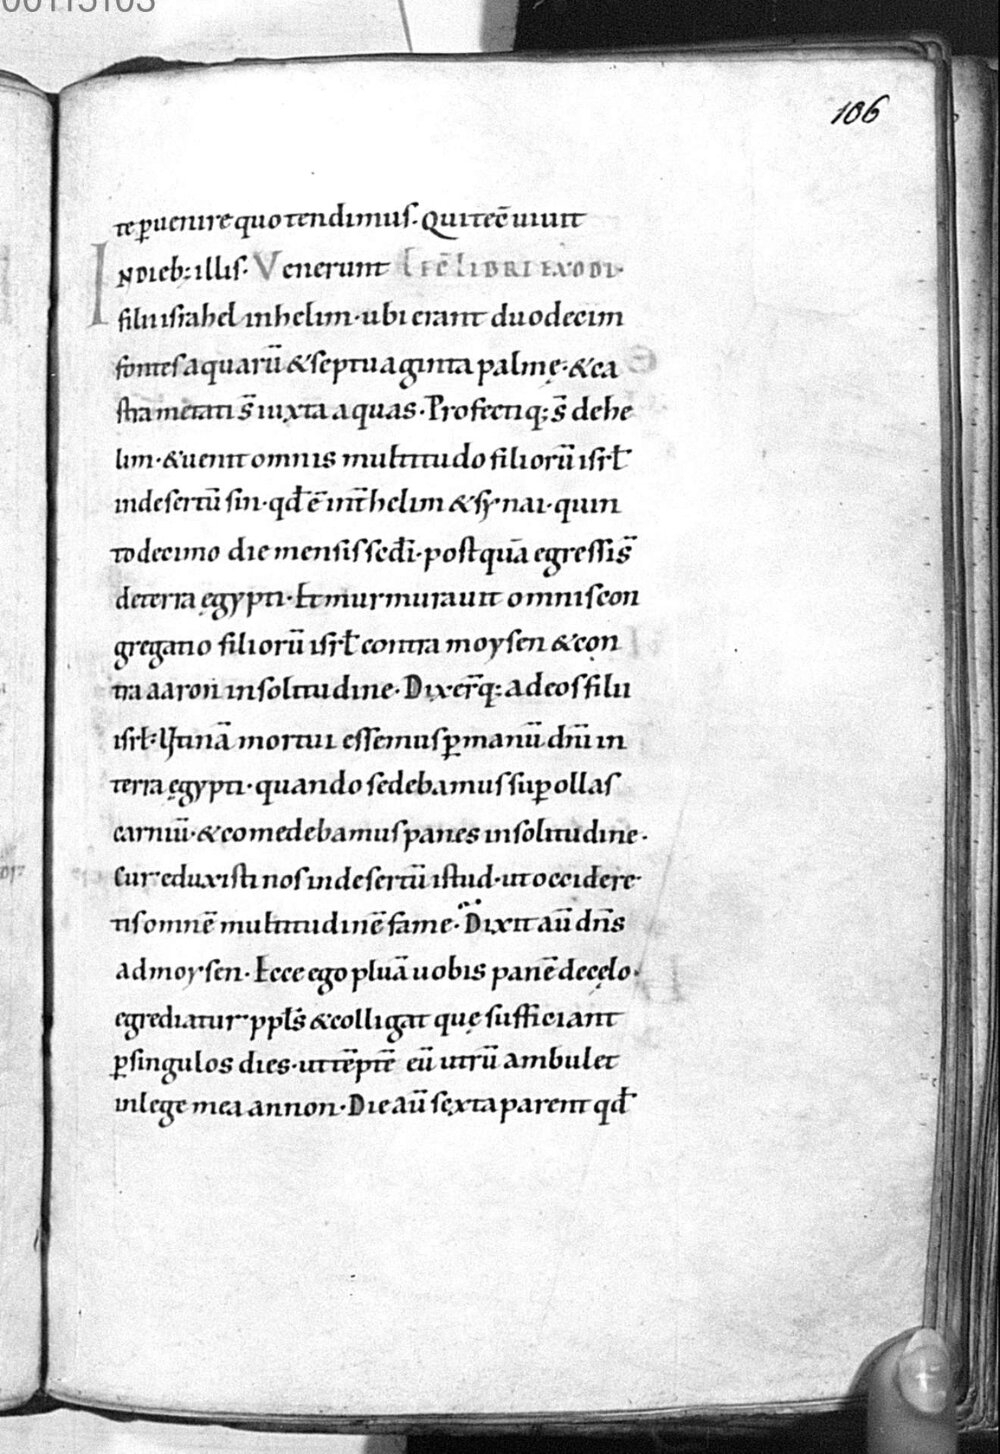 00115103
106
te ꝑuenire quo tendimus. Qui tecū uiuit
IN dieb; illis. Venerunt LEC̄ LIBRI EXODI.
filii israhel in helim. ubi erant duodecim
fontes aquarū & septuaginta palmę. & ca
stra metati s̄ iuxta aquas. Profectiq; s̄ de he
lim. & uenit omnis multitudo filiorū isrł
in desertū sin. qđ ē int̄ helim & synai. quin
to decimo die mensis sedi. postquā egressi s̄
de terra ęgypti. Et murmurauit omnis con
gregatio filiorū isrł contra moysen & con
tra aaron in solitudine. Dixer̄q; ad eos filii
isrł. Utinā mortui essemus ꝑ manū dn̄i in
terra ęgypti. quando sedebamus suꝑ ollas
carniū. & comedebamus panes in solitudine.
Cur eduxisti nos in desertū istud. ut occidere
tis omnē multitudinē fame. Dixit aū dn̄s
ad moysen. Ecce ego pluā uobis panē de cęlo.
egrediatur ppłs & colligat quę sufficiant
ꝑ singulos dies. ut tēptē eū utrū ambulet
in lege mea an non. Die aū sexta parent qđ